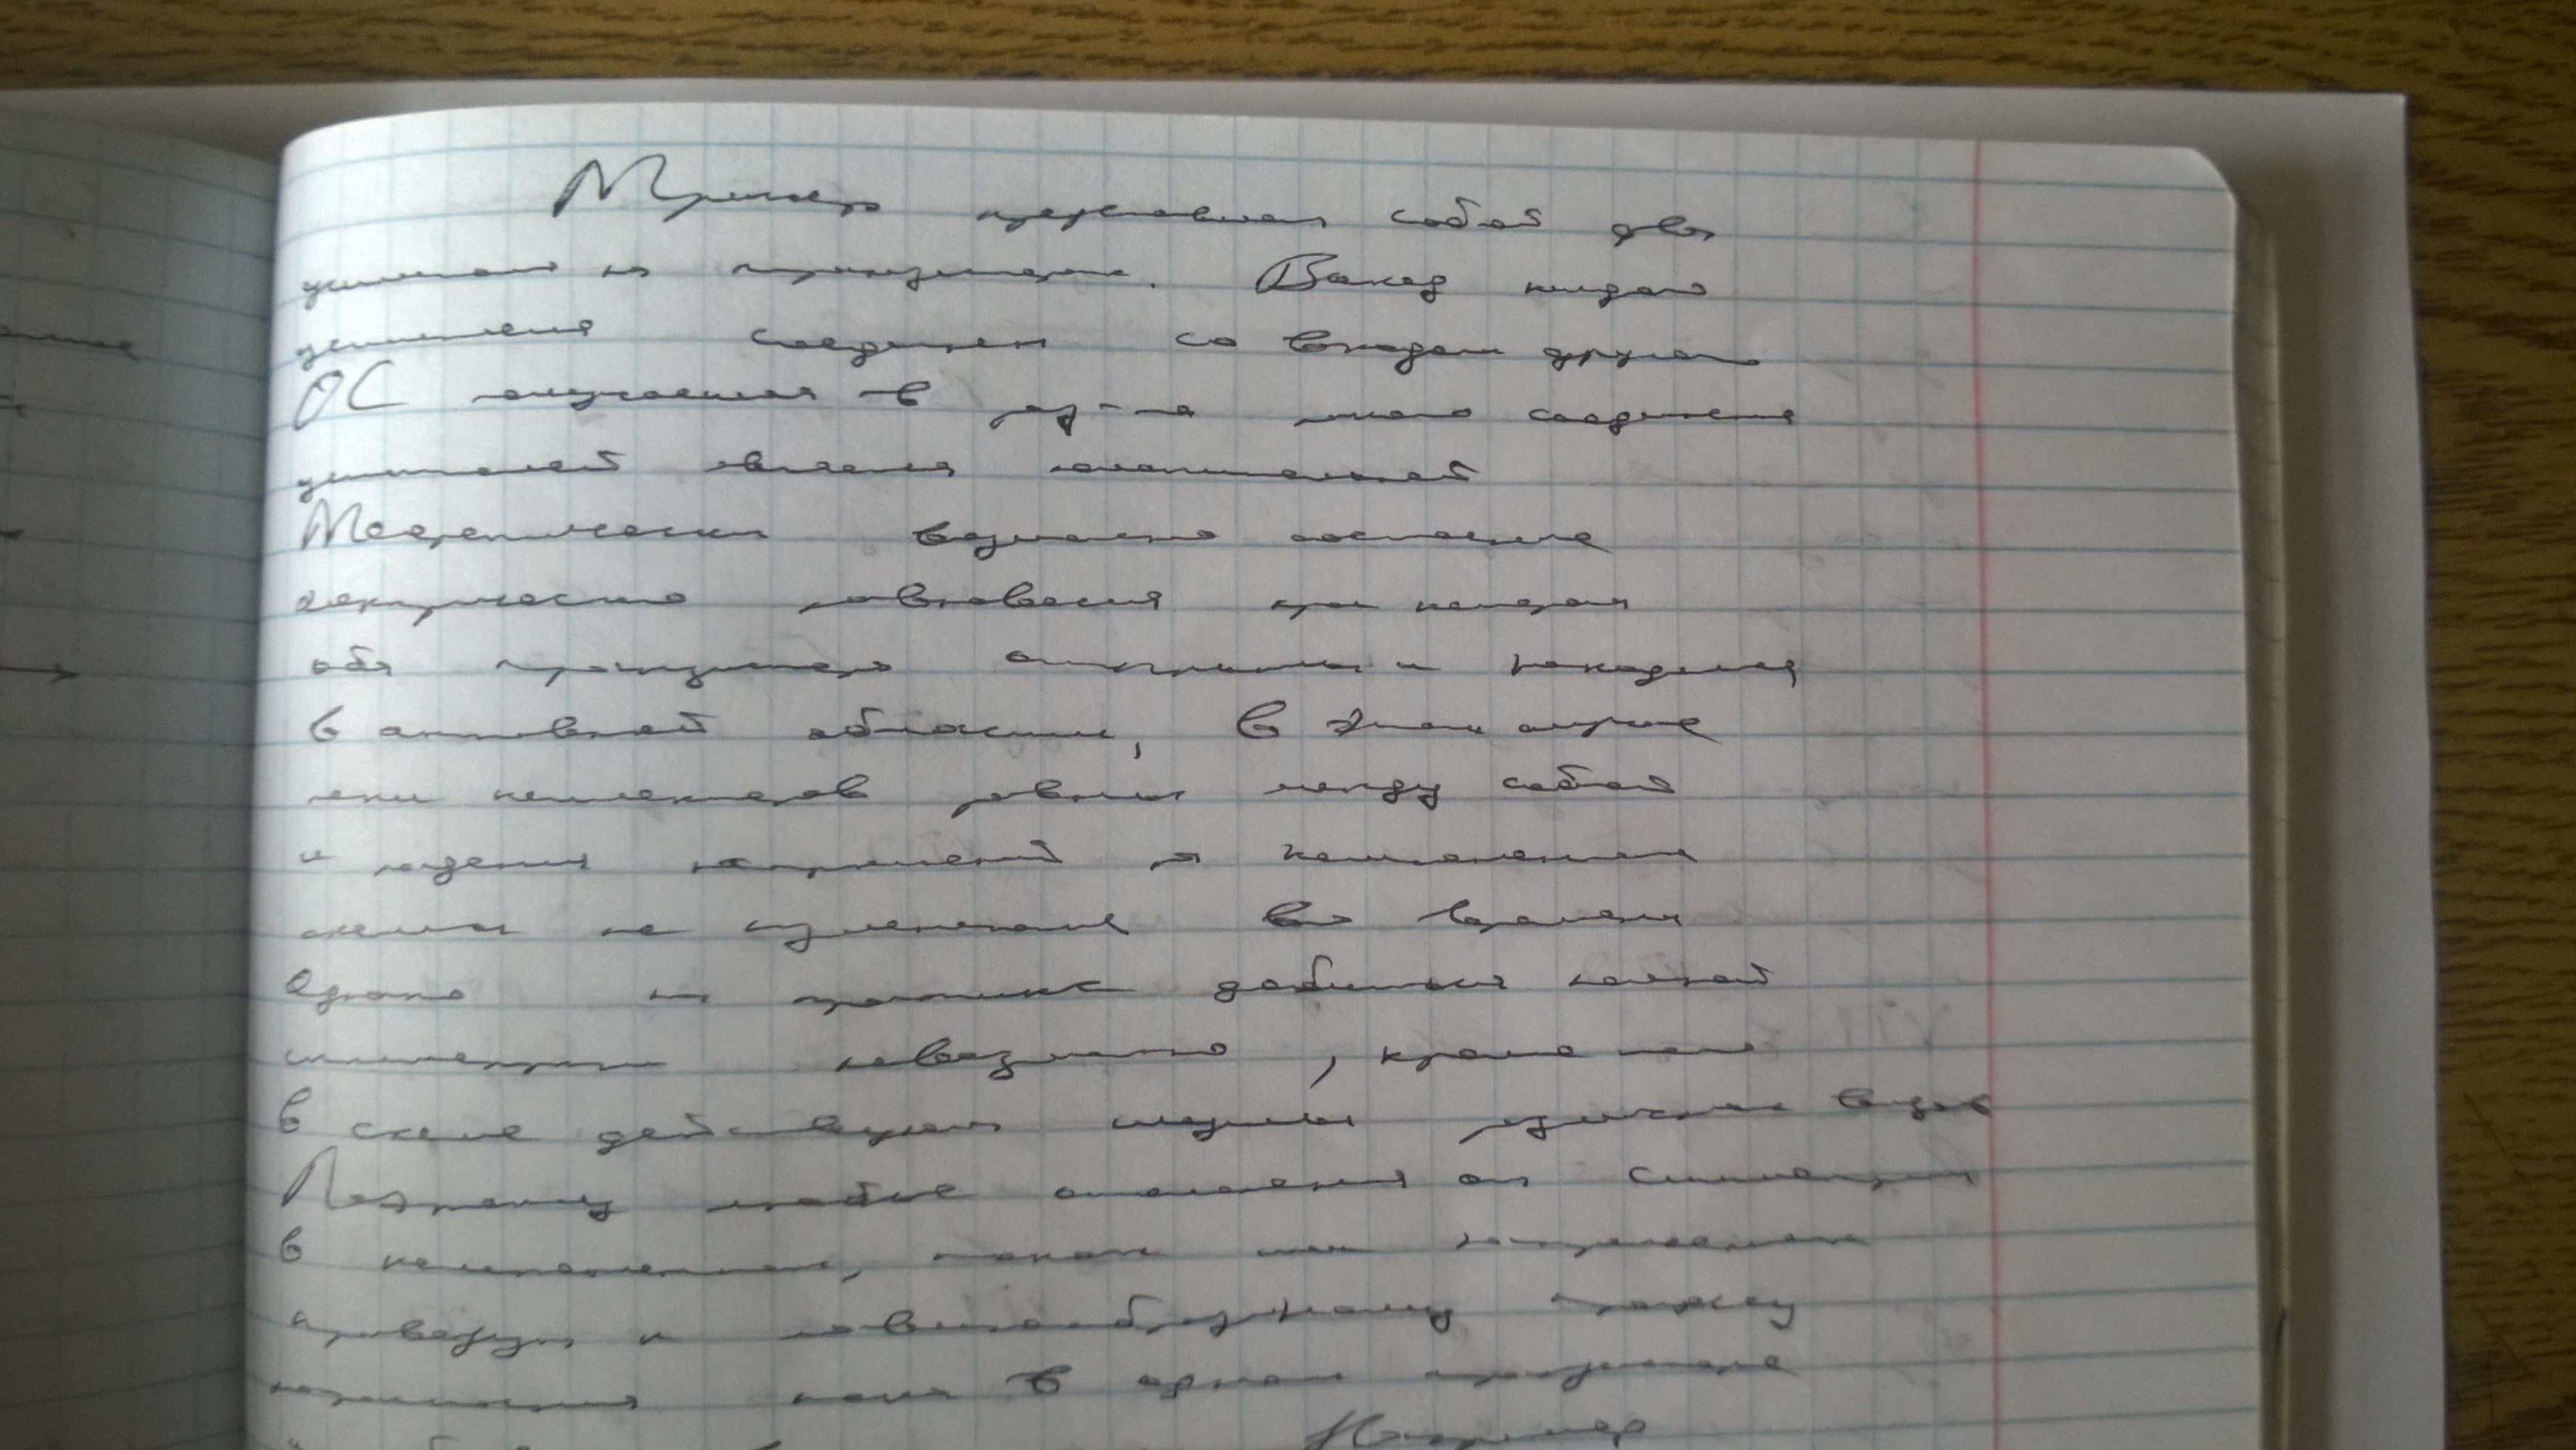 Триггер представляет собой два
усилителя на транзисторах. Выход каждого
усилителя соединен со входом другого
ОС получаемая в рез-те такого соединения
усилителей является положительной
Теоретически возможно состояние
электрического равновесия при котором
оба транзистора открыты и находятся
в активной области, в этом случае
токи коллекторов равны между собой
и падения напряжений на компонентах
схемы не изменяются во времени
Однако на практике добиться полной
симметрии невозможно, кроме того
в схеме действуют шумы различных видов
Поэтому любые отклонения от симметрии
в компонентах, токах или напряжениях
приведут к лавинообразному процессу
нарастания тока в одном транзисторе
Например